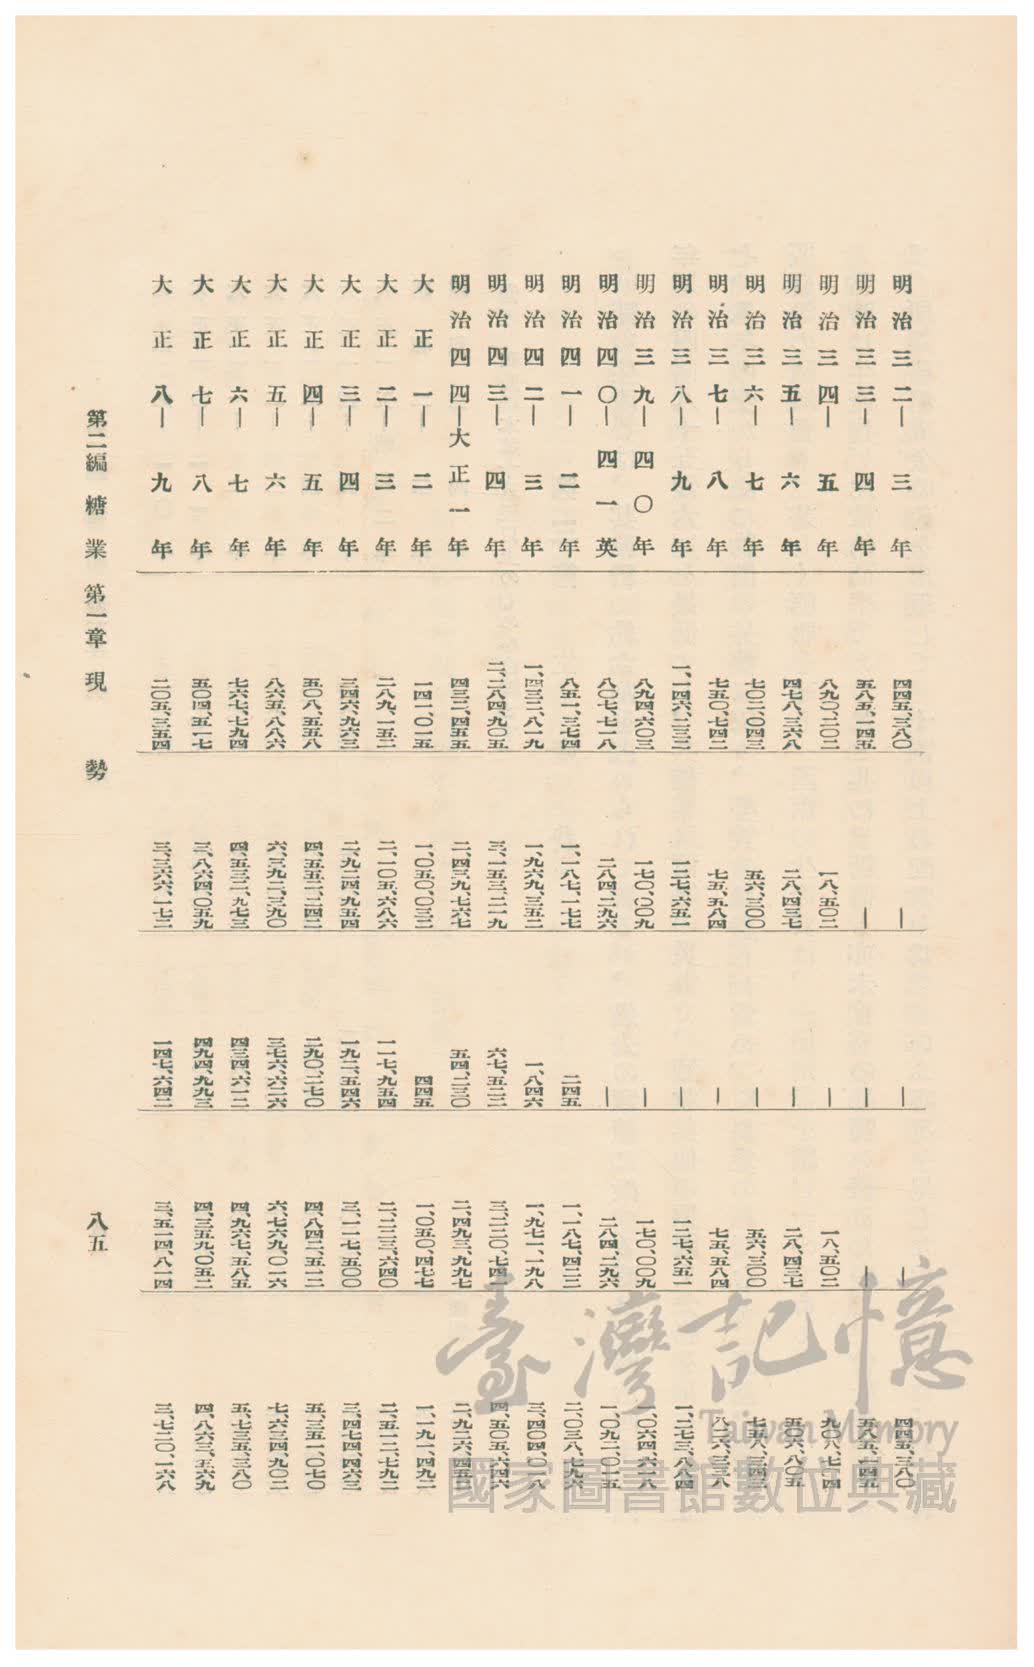 明治三二―三年 四四五、三八〇 ― ― ― 四四五、三八〇
明治三三―四年 五八五、一四五 ― ― ― 五八五、一四五
明治三四―五年 八九〇、二〇二 一八、五〇二 ― 一八、五〇二 九〇八、七〇四
明治三五―六年 四七八、三六八 二八、四三七 ― 二八、四三七 五〇六、八〇五
明治三六―七年 七〇二、〇四三 五六、三〇〇 ― 五六、三〇〇 七五八、三四三
明治三七―八年 七五〇、七四二 七五、五八四 ― 七五、五八四 八二六、三三八
明治三八―九年 一、一四六、二三二 一二七、六五一 ― 一二七、六五一 一、二七三、八八四
明治三九―四〇年 八九四、六〇三 一七〇、〇〇九 ― 一七〇、〇〇九 一、〇六四、六一八
明治四〇―四一英 八〇七、七一八 二八四、二九六 ― 二八四、二九六 一、〇九二、〇一五
明治四一―二年 八五一、三七四 一、一八七、一七七 二四五 一、一八七、四二二 二、〇三八、七九六
明治四二―三年 一、四三二、八一九 一、九六九、三五二 一、八四六 一、九七一、一九八 三、四〇四、〇一八
明治四三―四年 二、二八四、九〇五 三、一五三、二一九 六七、五二二 三、二二〇、七四一 四、五〇五、六四六
明治四四―大正一年 四三二、四五五 二、四三九、七六七 五四、二三〇 二、四九三、九九七 二、九二六、四五二
大正一―二年 一四一、〇一五 一、〇五〇、〇三二 四四五 一、〇五〇、四七七 一、一九一、四九二
大正二―三年 二八九、一五二 二、一〇五、六八六 一一七、九五四 二、二二三、六四〇 二、五一二、七九二
大正三―四年 三四六、九六三 二、九二四、九五四 一九二、五四六 三、一一七、五〇〇 三、四七四、四六三
大正四―五年 五〇八、五五八 四、五五二、二四二 二九〇、二七〇 四、八四二、五一二 五、三五一、〇七〇
大正五―六年 八六五、八八六 六、三九二、三九〇 三七六、六二六 六、七六九、〇一六 七、六三四、九〇二
大正六―七年 七六七、七九四 四、五三二、九七三 四三四、六一二 四、九六七、五八五 五、七三五、三八〇
大正七―八年 五〇四、五一七 三、八六四、〇五九 四九四、九九三 四、三五九、〇五二 四、八六三、五六九
大正八―九年 二〇五、三五四 三、三六六、一七二 一四七、六四二 三、五一四、八一四 三、七二〇、一六八
第二編 糖業 第一章 現勢 八五
臺灣記憶
Taiwan Memory
國家圖書館數位典藏